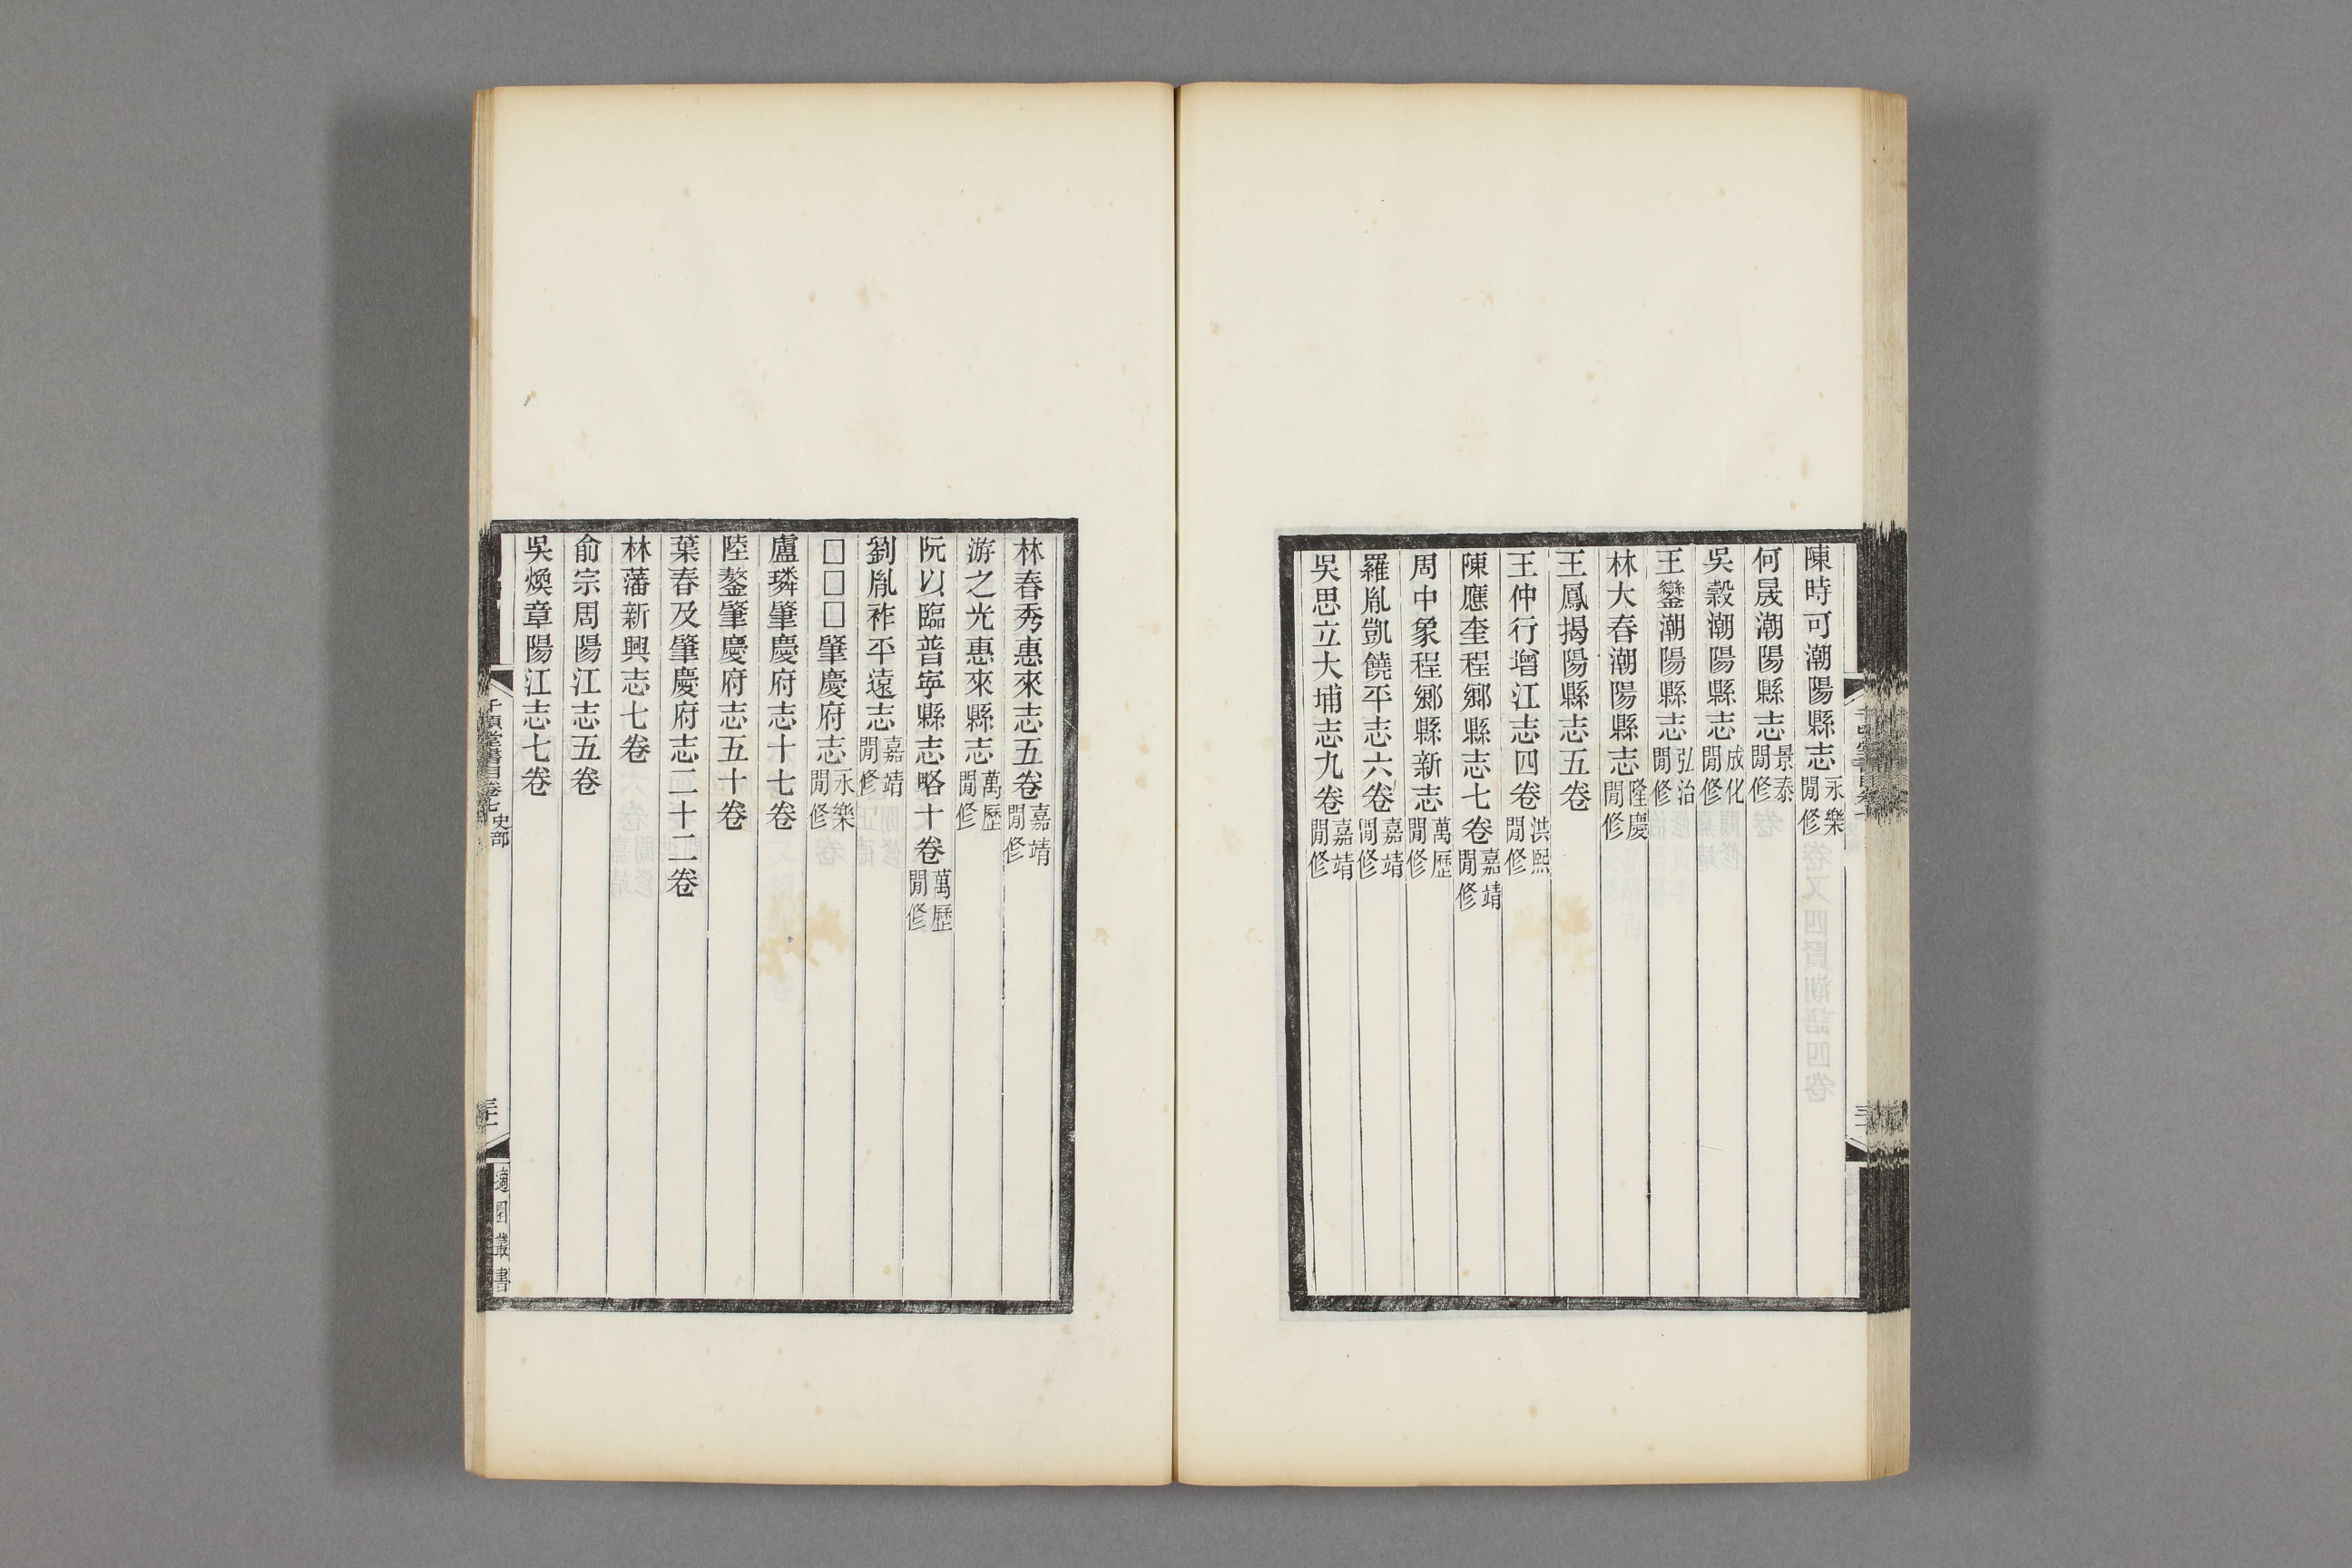 陳時可潮陽縣志永樂閒修
何晟潮陽縣志景泰閒修
吳糓潮陽縣志成化閒修
王鑾潮陽縣志弘治閒修
林大春潮陽縣志隆慶閒修
王鳳揭陽縣志五卷
王仲行增江志四卷洪熙閒修
陳應奎程鄉縣志七卷嘉靖閒修
周中象程鄉縣新志萬歷閒修
羅胤凱饒平志六卷嘉靖閒修
吳思立大埔志九卷嘉靖閒修
林春秀惠來志五卷嘉靖閒修
游之光惠來縣志萬歷閒修
阮以臨普寜縣志略十卷萬歷閒修
劉胤祚平遠志嘉靖閒修
□□□肇慶府志永樂閒修
盧璘肇慶府志十七卷
陸鏊肇慶府志五十卷
葉春及肇慶府志二十二卷
林藩新興志七卷
俞宗周陽江志五卷
吳煥章陽江志七卷
千頃堂書目卷七史部
適園叢書